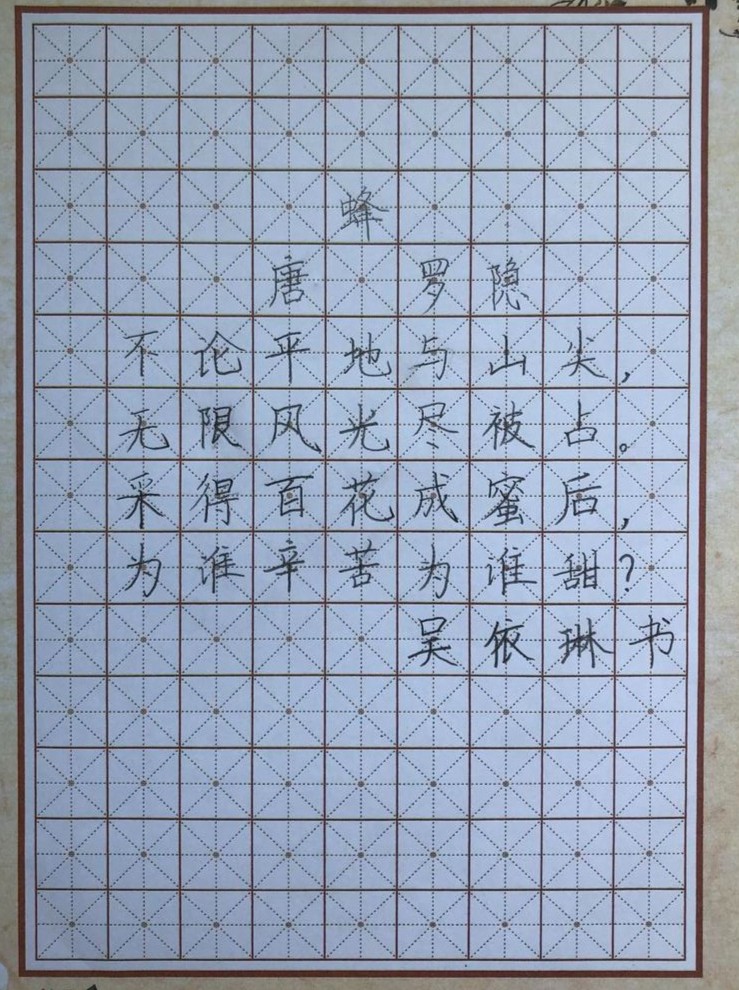 蜂
唐 罗隐
不论平地与山尖，
无限风光尽被占。
采得百花成蜜后，
为谁辛苦为谁甜？
吴依琳书